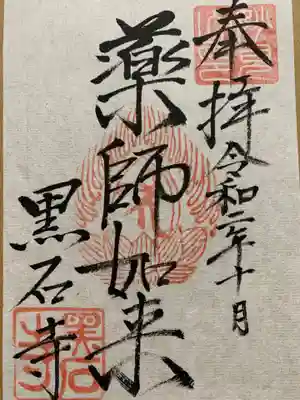 奉拝
令和二年十月
薬師如来
黒石寺